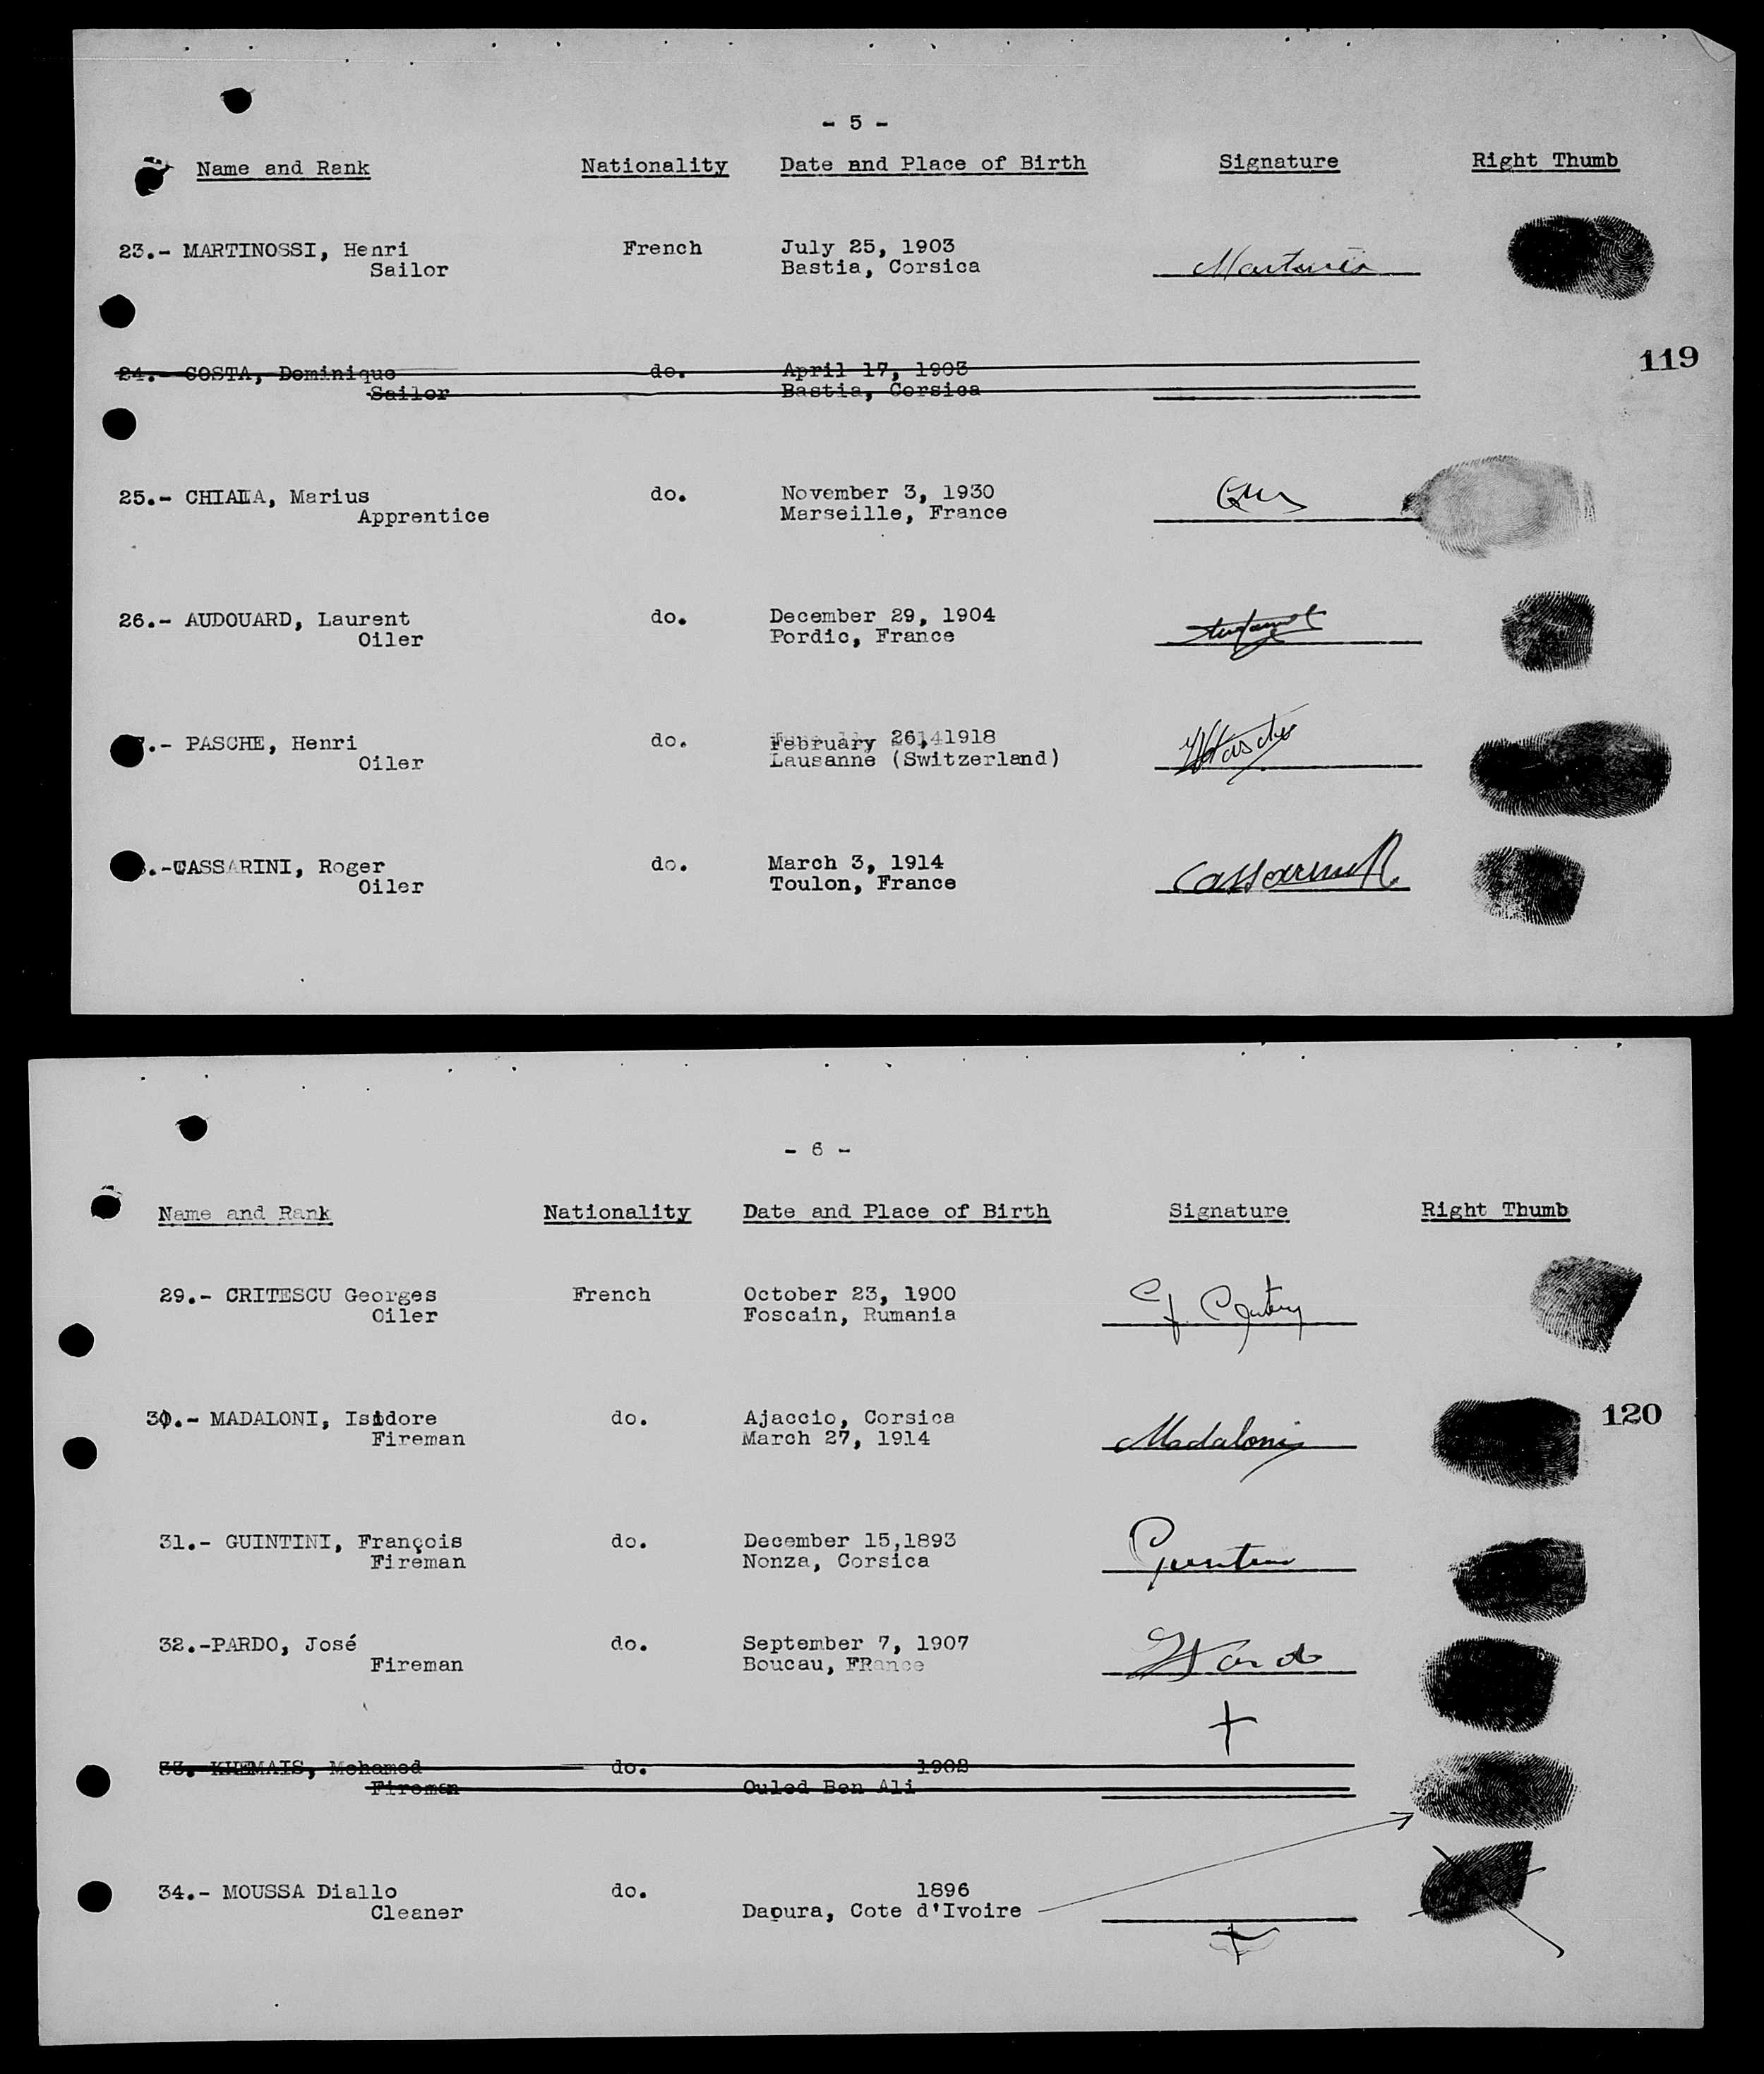 - 5 -
Name and Rank Nationality Date and Place of Birth Signature Right Thumb
23.- MARTINOSSI, Henri French July 25, 1903
Sailor Bastia, Corsica
119
24.- COSTA, Dominique do. April 17, 1903
Sailor Bastia, Corsica
25.- CHIALA, Marius do. November 3, 1930
Apprentice Marseille, France
26.- AUDOUARD, Laurent do. December 29, 1904
Oiler Pordic, France
.- PASCHE, Henri do. February 26, 1918
Oiler Lausanne (Switzerland)
.-CASSARINI, Roger do. March 3, 1914 Cassarini R
Oiler Toulon, France
- 6 -
Name and Rank Nationality Date and Place of Birth Signature Right Thumb
29.- CRITESCU Georges French October 23, 1900
Oiler Foscain, Rumania
30.- MADALONI, Isidore do. Ajaccio, Corsica Madaloni 120
Fireman March 27, 1914
31.- GUINTINI, François do. December 15,1893
Fireman Nonza, Corsica
32.-PARDO, José do. September 7, 1907
Fireman Boucau, FRance
33. KHEMAIS, Mohamed do. 1902
Fireman Ouled Ben Ali
34.- MOUSSA Diallo do. 1896
Cleaner Daoura, Cote d'Ivoire